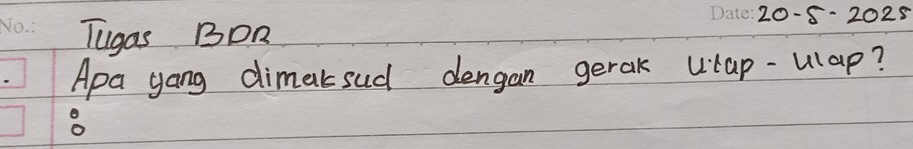 No.: Date: 20-5-2025
Tugas BDR
. Apa yang dimaksud dengan gerak ulap-ulap?
: